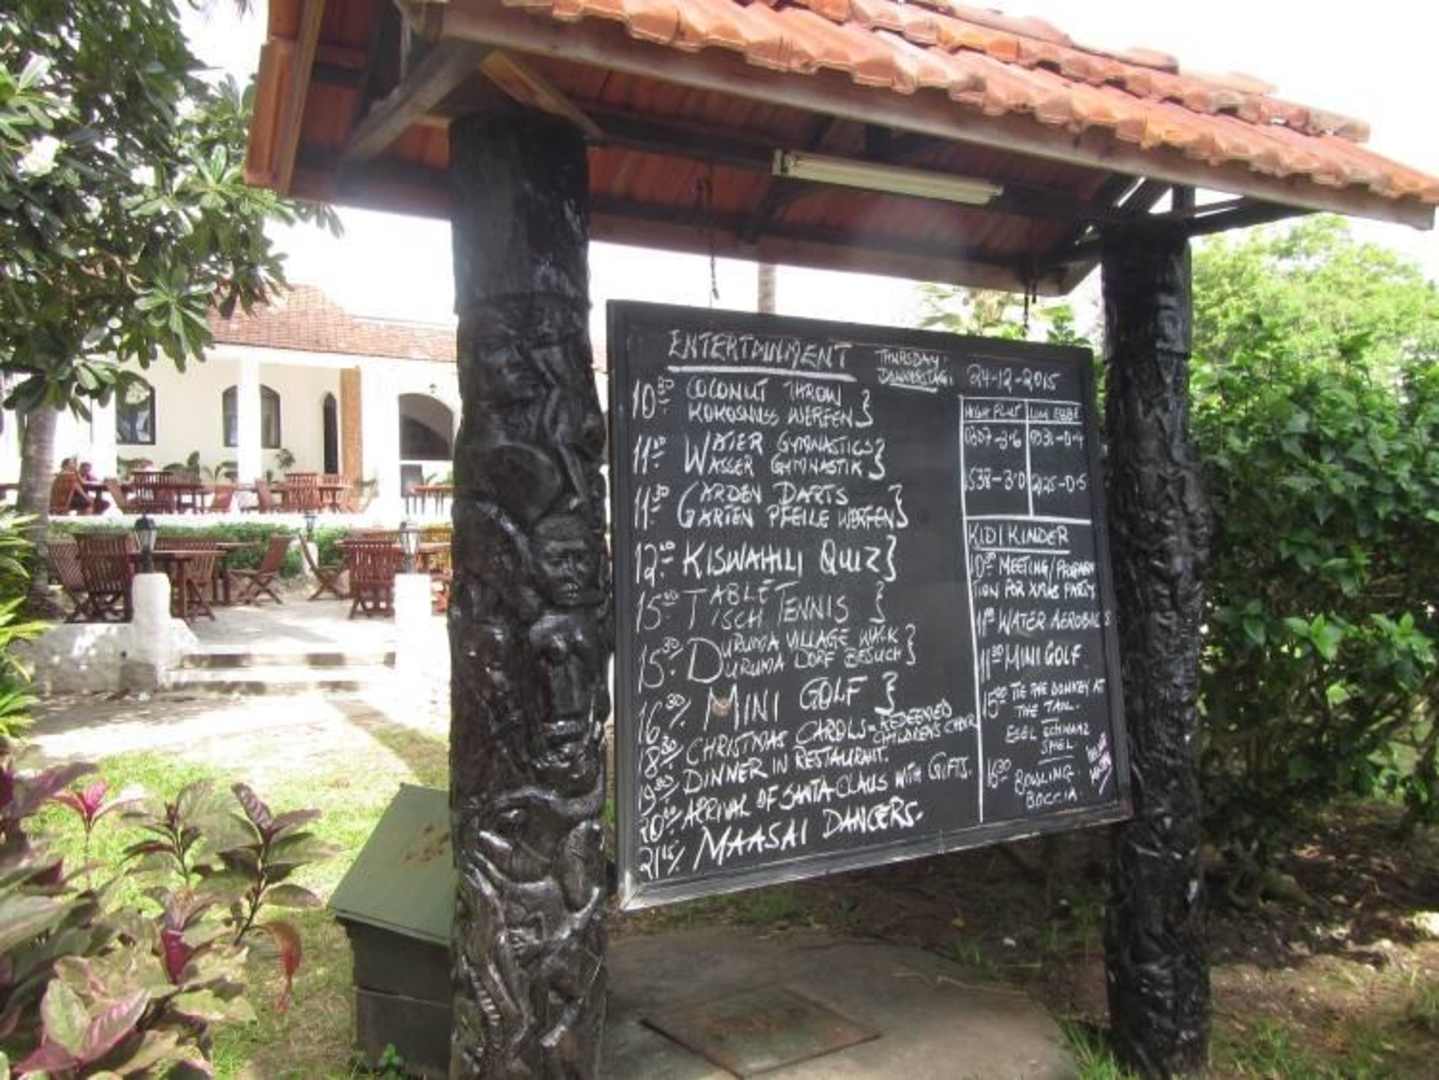 ENTERTAINMENT
THURSDAY:
DONNERSTAG:
24-12-2015
10 00 COCONUT THROW
KOKOSNUSS WERFEN
WATER GYMNASTICS
WASSER GYMNASTIK
11 30 GARDEN DARTS
GARTEN PFEILE WERFEN
KISWAHILI QUIZ
TABLE TENNIS
TISCH
15 30 DURUMA VILLAGE WALK
DURUMA DORF BESUCH
16 30 MINI GOLF
18 30 CHRISTMAS CAROLS - REDEEMED
CHILDRENS CHOIR
19 30 DINNER IN RESTAURANT.
ARRIVAL OF SANTA CLAUS WITH GIFTS.
21 15 MAASAI DANCERS.
HIGH FLUT LOW EBBE
0307-3.6 0931-0.4
1538-3.0 2125-0.5
KIDI KINDER
MEETING/PREPARA
TION FOR XMAS PARTY
WATER AEROBICS
11 30 MINI GOLF
15 00 TIE THE DONKEY AT
THE TAIL.
ESEL SCHWANZ
SPIEL
16 30 BOWLING
BOCCIA